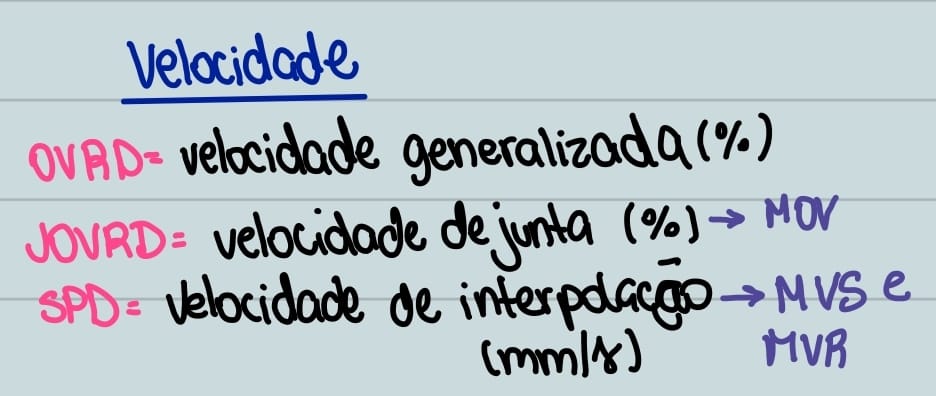 Velocidade
OVRD= velocidade generalizada (%)
JOVRD= velocidade de junta (%) → MOV
SPD= velocidade de interpolação → MVS e
(mm/s) MVR